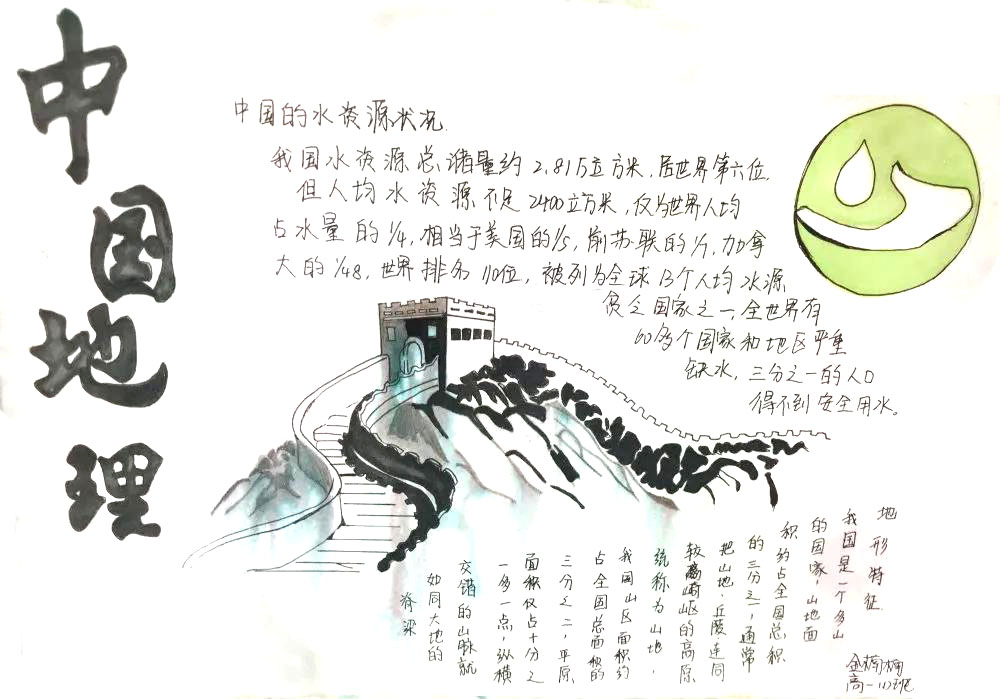 中国地理
中国的水资源状况
我国水资源总诸量约2.81万立方米,居世界第六位.
但人均水资源不足2400立方米,仅为世界人均
占水量的1/4,相当于美国的1/5,前苏联的1/7,加拿
大的1/48,世界排名110位,被列为全球13个人均水源
贫乏国家之一,全世界有
60多个国家和地区严重
缺水,三分之一的人口
得不到安全用水。
地形特征
我国是一个多山
的国家,山地面
积约占全国总积
的三分之一,通常
把山地,丘陵,连同
较崎岖的高原
统称为山地,
我国山区面积约
占全国总面积的
三分之二,平原
面积仅占十分之
一多一点,纵横
交错的山脉就
如同大地的
脊梁
高一(1)班